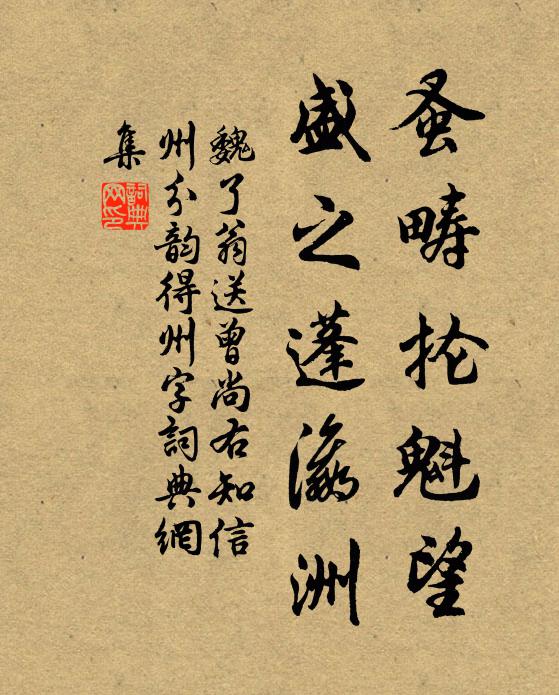 蚤畴抡魁望
盛之蓬瀛洲
魏了翁送曾尚右知信
州分韵得州字詞典網
集
詞典网印